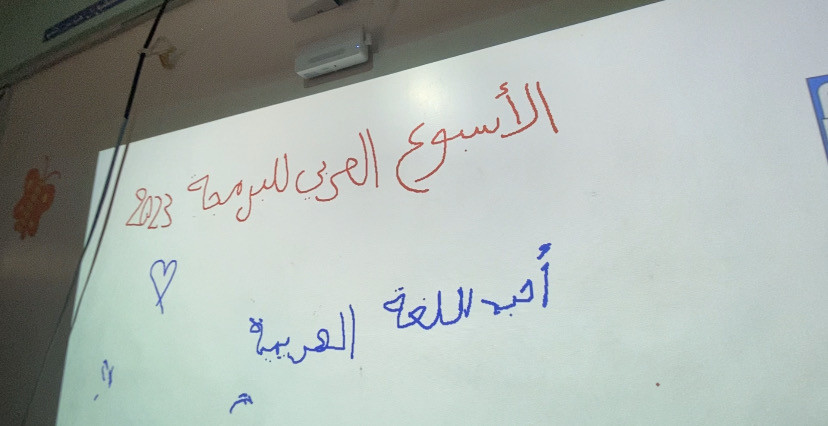 الأسبوع العربي للبرمجة 2023
أحب اللغة العربية